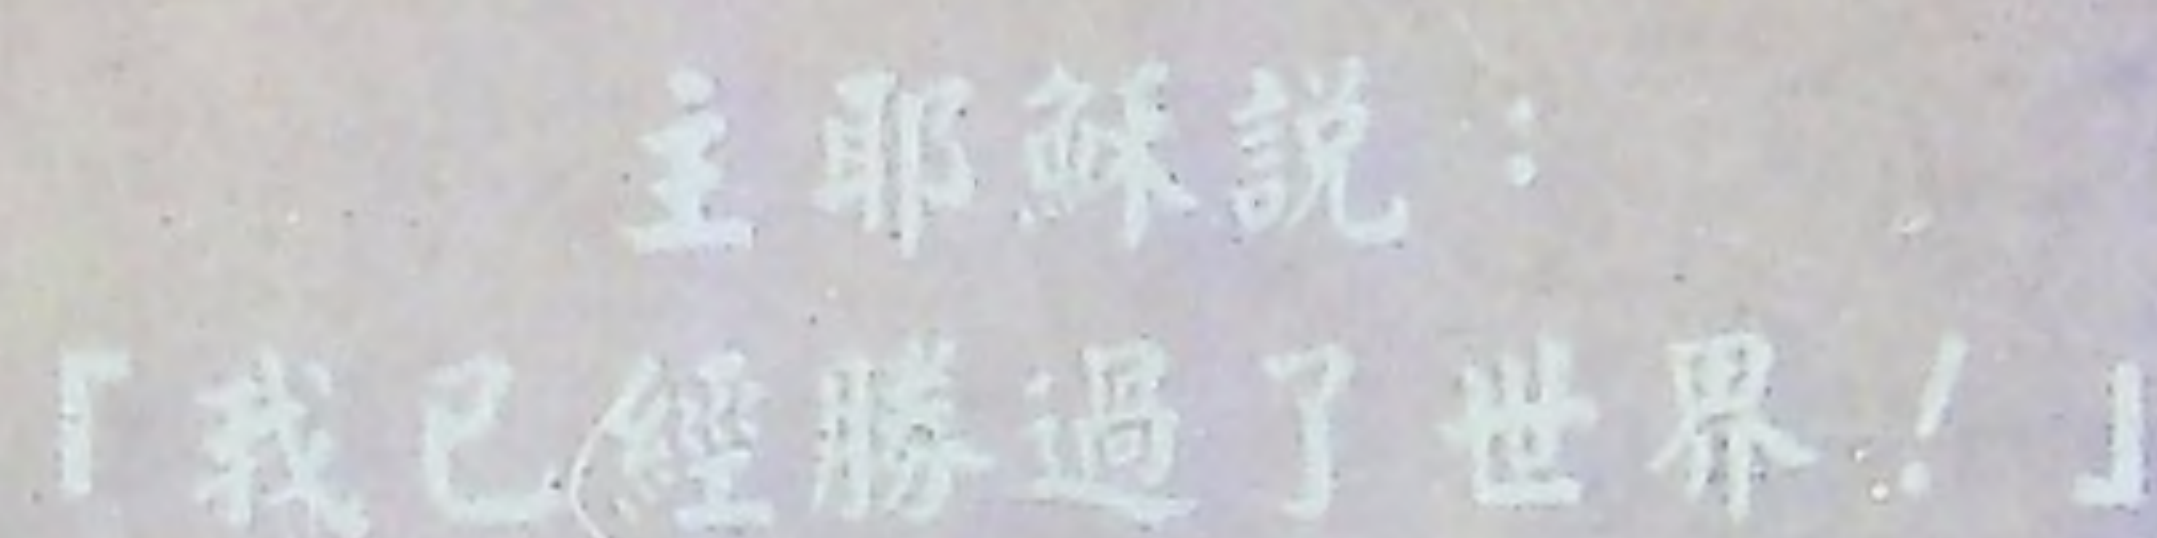 主耶穌説：
「我已經勝過了世界！」